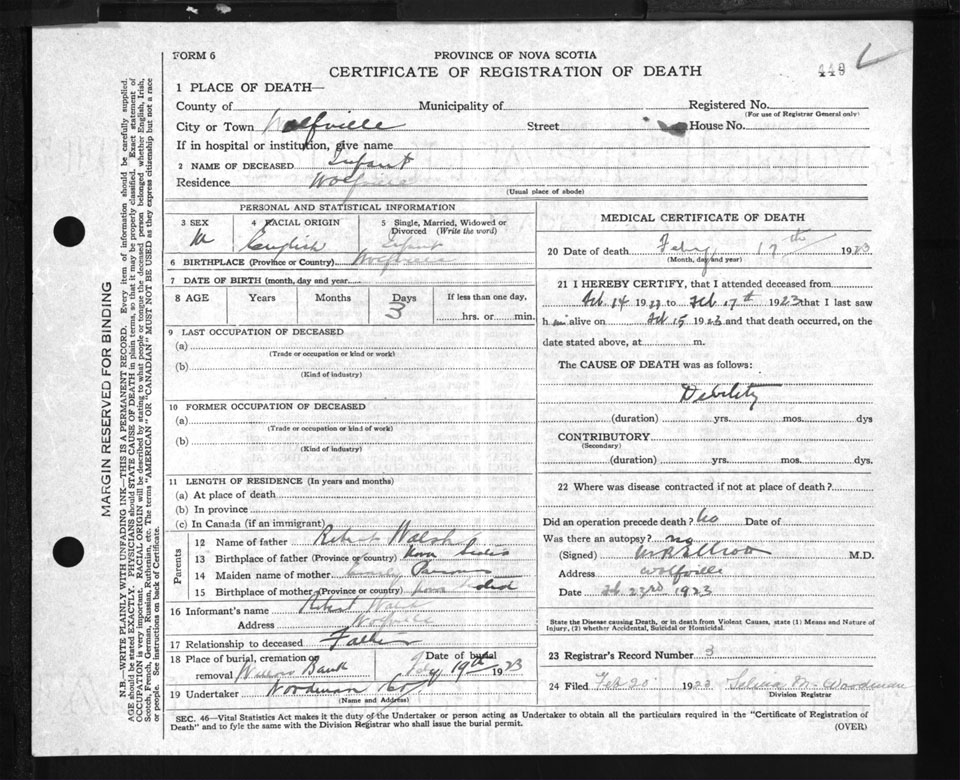 FORM 6
PROVINCE OF NOVA SCOTIA
CERTIFICATE OF REGISTRATION OF DEATH
449
1 PLACE OF DEATH—
County of
Municipality of
Registered No.
(For use of Registrar General only)
City or Town Wolfville
Street
House No.
If in hospital or institution, give name
2 NAME OF DECEASED Infant
Residence Wolfville
(Usual place of abode)
PERSONAL AND STATISTICAL INFORMATION
3 SEX M
4 RACIAL ORIGIN English
5 Single, Married, Widowed or Divorced (Write the word) Infant
6 BIRTHPLACE (Province or Country) Wolfville
7 DATE OF BIRTH (month, day and year)
8 AGE Years Months Days 3
If less than one day,
hrs. or min.
9 LAST OCCUPATION OF DECEASED
(a)
(Trade or occupation or kind or work)
(b)
(Kind of industry)
10 FORMER OCCUPATION OF DECEASED
(a)
(Trade or occupation or kind of work)
(b)
(Kind of industry)
11 LENGTH OF RESIDENCE (In years and months)
(a) At place of death
(b) In province
(c) In Canada (if an immigrant)
Parents
12 Name of father Robert Walsh
13 Birthplace of father (Province or country) Nova Scotia
14 Maiden name of mother Parsons
15 Birthplace of mother (Province or country) Nova
16 Informant's name Robert
Address Wolfville
17 Relationship to deceased Father
18 Place of burial, cremation or removal Willow Bank
Date of burial Feby 19th 1923
19 Undertaker Woodman Co
(Name and Address)
MEDICAL CERTIFICATE OF DEATH
20 Date of death Feby 17th 1923
(Month, day and year)
21 I HEREBY CERTIFY, that I attended deceased from
Feb. 14 1923 to Feb 17th 1923 that I last saw
h im alive on Feb 15 1923 and that death occurred, on the
date stated above, at m.
The CAUSE OF DEATH was as follows:
Debility
(duration) yrs. mos. dys
CONTRIBUTORY
(Secondary)
(duration) yrs. mos. dys.
22 Where was disease contracted if not at place of death?
Did an operation precede death? No Date of
Was there an autopsy? no
(Signed) M.D.
Address Wolfville
Date Feb. 23rd 1923
State the Disease causing Death, or in death from Violent Causes, state (1) Means and Nature of
Injury, (2) whether Accidental, Suicidal or Homicidal.
23 Registrar's Record Number 3
24 Filed Feb 20 1923 Selina M. Woodman
Division Registrar
SEC. 46—Vital Statistics Act makes it the duty of the Undertaker or person acting as Undertaker to obtain all the particulars required in the "Certificate of Registration of
Death" and to fyle the same with the Division Registrar who shall issue the burial permit.
(OVER)
MARGIN RESERVED FOR BINDING
N.B.—WRITE PLAINLY WITH UNFADING INK—THIS IS A PERMANENT RECORD. Every item of information should be carefully supplied.
AGE should be stated EXACTLY. PHYSICIANS should STATE CAUSE OF DEATH in plain terms, so that it may be properly classified. Exact statement of
OCCUPATION is very important. RACIAL ORIGIN will be described by stating to what people or tongue the deceased person belonged whether English, Irish,
Scotch, French, German, Russian, Ruthenian, etc. The terms "AMERICAN" OR "CANADIAN" MUST NOT BE USED as they express citizenship but not a race
or people. See instructions on back of Certificate.